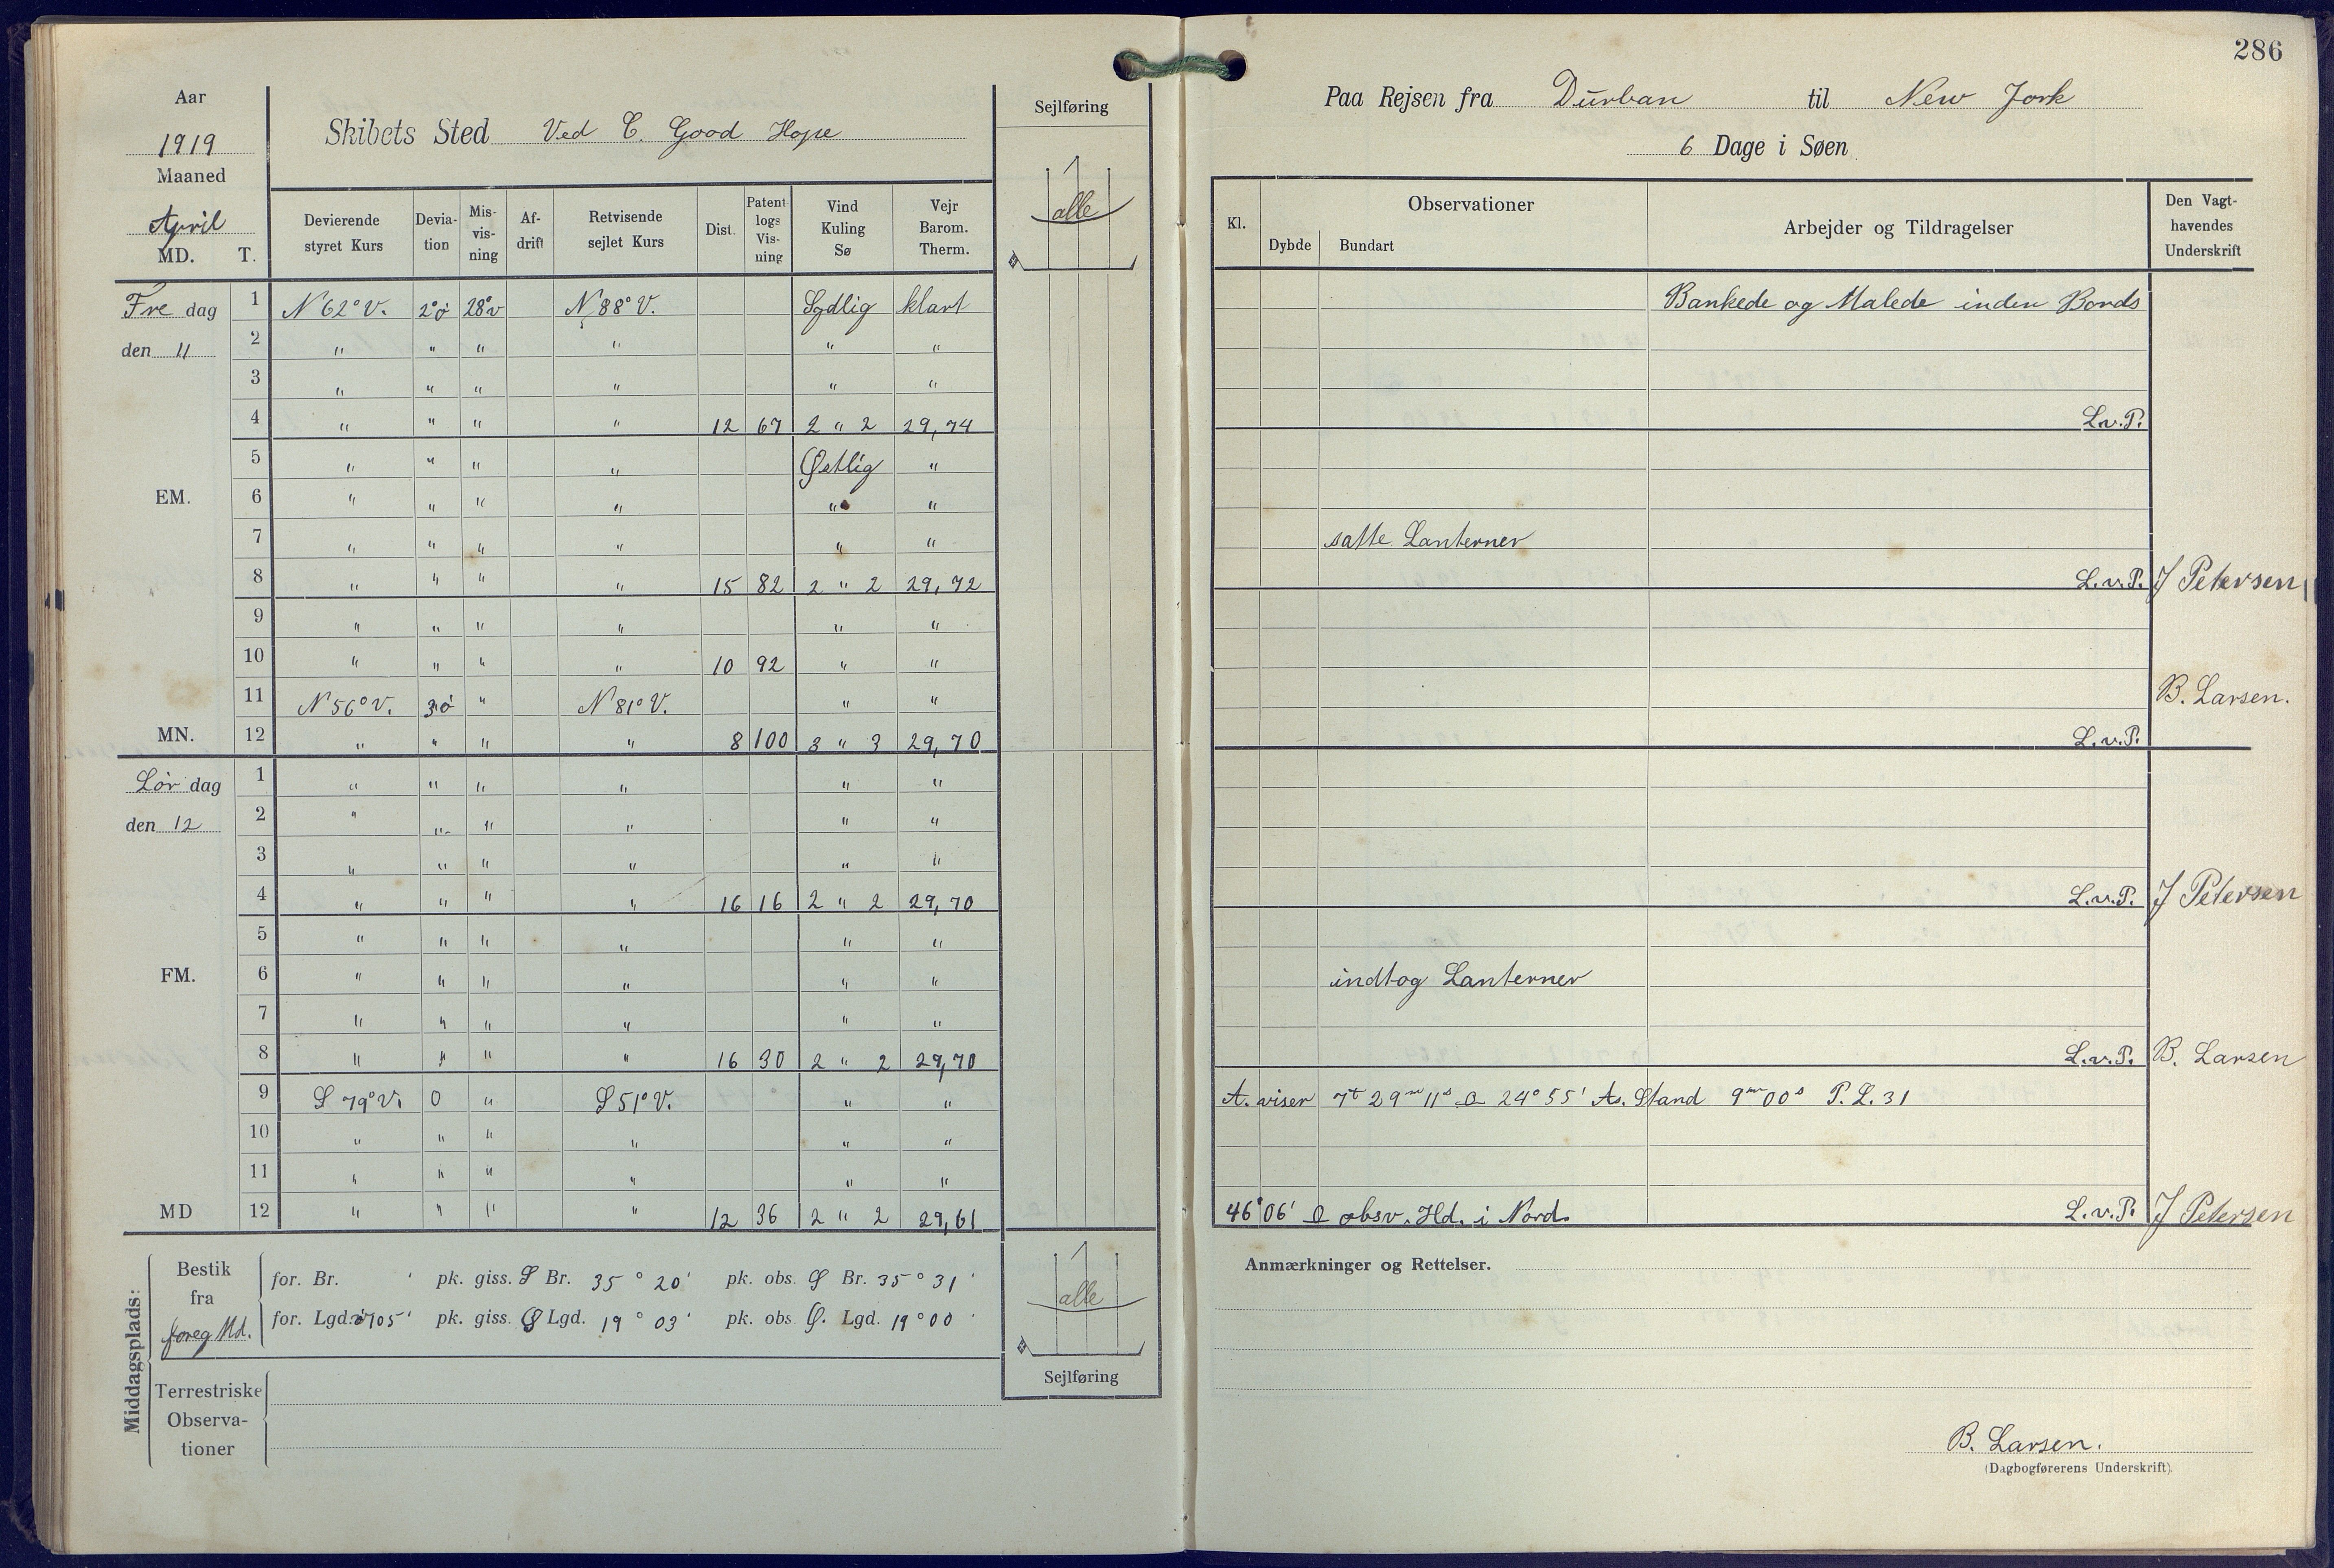 286
Aar
1919
Maaned
April
MD. T.
Skibets Sted Ved C. Good Hope
Sejlføring
alle
Devierende styret Kurs
Devia-tion
Mis-vis-ning
Af-drift
Retvisende sejlet Kurs
Dist.
Patent logs Vis-ning
Vind Kuling Sø
Vejr Barom. Therm.
Fre dag 1 N 62° V. 2°ö 28°v N 88° V. Sydlig klart
den 11 2 " " " " " "
3 " " " " " "
4 " " " " 12 67 2 " 2 29,74
5 " " " " Østlig "
EM. 6 " " " " " "
7 " " " " " "
8 " " " " 15 82 2 " 2 29,72
9 " " " " " "
10 " " " " 10 92 " "
11 N 56° V. 3°ö " N 81° V. " "
MN. 12 " " " " 8 100 3 " 3 29,70
Lör dag 1 " " " " " "
den 12 2 " " " " " "
3 " " " " " "
4 " " " " 16 16 2 " 2 29,70
5 " " " " " "
FM. 6 " " " " " "
7 " " " " " "
8 " " " " 16 30 2 " 2 29,70
9 S 79° V. 0 " S 51° V. " "
10 " " " " " "
11 " " " " " "
MD 12 " " " " 12 36 2 " 2 29,61
Middagsplads:
Bestik fra foreg Md.
for. Br. ' pk. giss. S Br. 35 ° 20' pk. obs. S Br. 35 ° 31'
for. Lgd. 705' pk. giss. Ø Lgd. 19 ° 03' pk. obs. Ø. Lgd. 19 ° 00'
Terrestriske Observa-tioner
alle
Sejlføring
Paa Rejsen fra Durban til New Jork
6 Dage i Søen
Kl.
Observationer
Dybde Bundart
Arbejder og Tildragelser
Den Vagt-havendes Underskrift
Bankede og Malede inden Bords
L.v.P.
satte Lanterner
L.v.P. J Petersen
B. Larsen.
L.v.P.
L.v.P. J Petersen
indtog Lanterner
L.v.P. B. Larsen
A. viser 7t 29m 11s O 24° 55' As. Stand 9m 00s P. L. 31
46° 06' O obsv. Hd. i Nord. L.v.P. J Petersen
Anmærkninger og Rettelser.
B. Larsen.
(Dagbogførerens Underskrift).